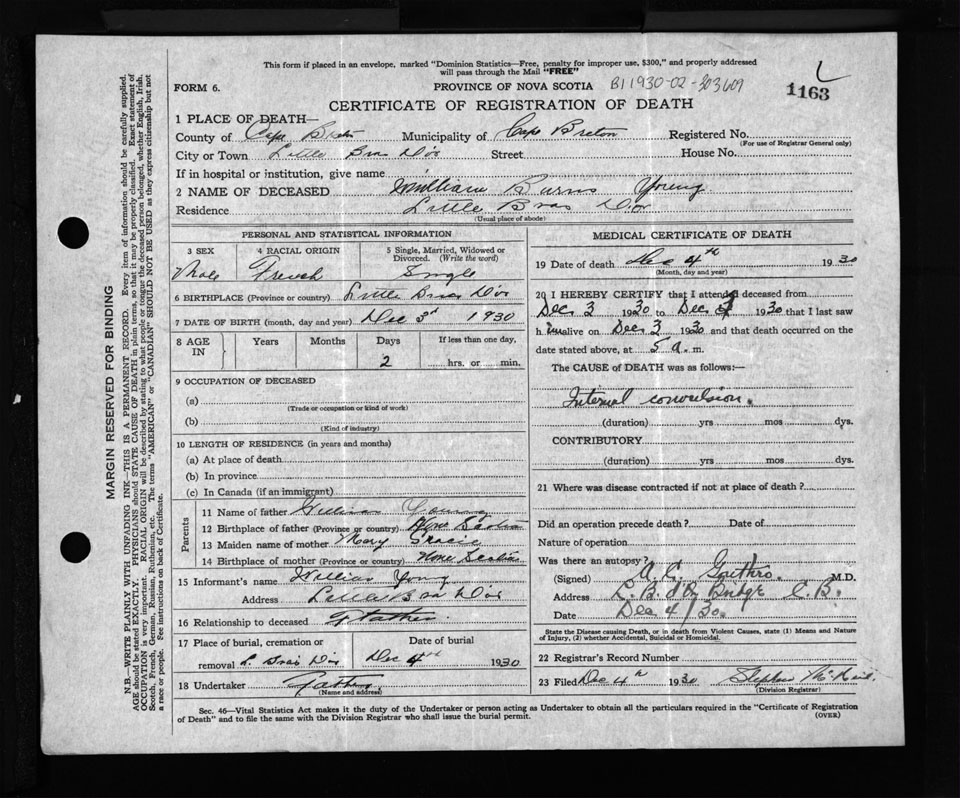 This form if placed in an envelope, marked "Dominion Statistics—Free, penalty for improper use, $300," and properly addressed
will pass through the Mail "FREE"
FORM 6.
PROVINCE OF NOVA SCOTIA
B11930-02-303609
1163
CERTIFICATE OF REGISTRATION OF DEATH
1 PLACE OF DEATH—
County of Cape Breton Municipality of Cape Breton Registered No.
(For use of Registrar General only)
City or Town Little Bras D'or Street House No.
If in hospital or institution, give name
2 NAME OF DECEASED William Burns Young
Residence Little Bras D'or
(Usual place of abode)
PERSONAL AND STATISTICAL INFORMATION
3 SEX 4 RACIAL ORIGIN 5 Single, Married, Widowed or
Divorced. (Write the word)
Male French Single
6 BIRTHPLACE (Province or country) Little Bras D'or
7 DATE OF BIRTH (month, day and year) Dec 3rd 1930
8 AGE IN Years Months Days If less than one day,
2 hrs. or min.
9 OCCUPATION OF DECEASED
(a)
(Trade or occupation or kind of work)
(b)
(Kind of industry)
10 LENGTH OF RESIDENCE (in years and months)
(a) At place of death
(b) In province
(c) In Canada (if an immigrant)
Parents
11 Name of father William Young
12 Birthplace of father (Province or country) Nova Scotia
13 Maiden name of mother Mary Gracie
14 Birthplace of mother (Province or country) Nova Scotia
15 Informant's name William Young
Address Little Bras D'or
16 Relationship to deceased Father.
17 Place of burial, cremation or Date of burial
removal L. Bras D'or Dec 4th 1930
18 Undertaker Father
(Name and address)
MEDICAL CERTIFICATE OF DEATH
19 Date of death Dec 4th 1930
(Month, day and year)
20 I HEREBY CERTIFY that I attended deceased from
Dec 3 1930 to Dec 1930 that I last saw
him alive on Dec 3 1930 and that death occurred on
date stated above, at 5 a. m.
The CAUSE of DEATH was as follows:—
Internal convulsion.
(duration) yrs mos dys.
CONTRIBUTORY
(duration) yrs mos dys.
21 Where was disease contracted if not at place of death?
Did an operation precede death? Date of
Nature of operation
Was there an autopsy?
(Signed) A. C. Gouthro. M.D.
Address L. B. d'Or Bridge C.B.
Date Dec 4/30.
State the Disease causing Death, or in death from Violent Causes, state (1) Means and Nature
of Injury, (2) whether Accidental, Suicidal or Homicidal.
22 Registrar's Record Number
23 Filed Dec 4th 1930 Stephen McNeil
(Division Registrar)
Sec. 46—Vital Statistics Act makes it the duty of the Undertaker or person acting as Undertaker to obtain all the particulars required in the "Certificate of Registration
of Death" and to file the same with the Division Registrar who shall issue the burial permit.
(OVER)
MARGIN RESERVED FOR BINDING
N.B.—WRITE PLAINLY WITH UNFADING INK—THIS IS A PERMANENT RECORD. Every item of information should be carefully supplied.
AGE should be stated EXACTLY. PHYSICIANS should STATE CAUSE OF DEATH in plain terms, so that it may be properly classified. Exact statement of
OCCUPATION is very important. RACIAL ORIGIN will be described by stating to what people or tongue the deceased person belonged, whether English, Irish,
Scotch, French, German, Russian, Ruthenian, etc. The terms "AMERICAN" or "CANADIAN" SHOULD NOT BE USED as they express citizenship but not
a race or people. See instructions on back of Certificate.